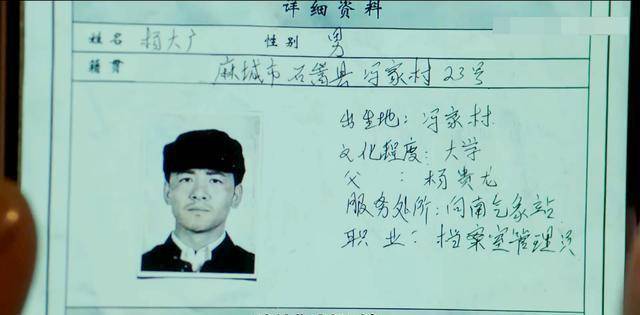 详细资料
姓名 杨大广 性别 男
籍贯 麻城市石嵩县冯家村23号
出生地：冯家村
文化程度：大学
父：杨贵龙
服务处所：向南气象站
职业：档案室管理员